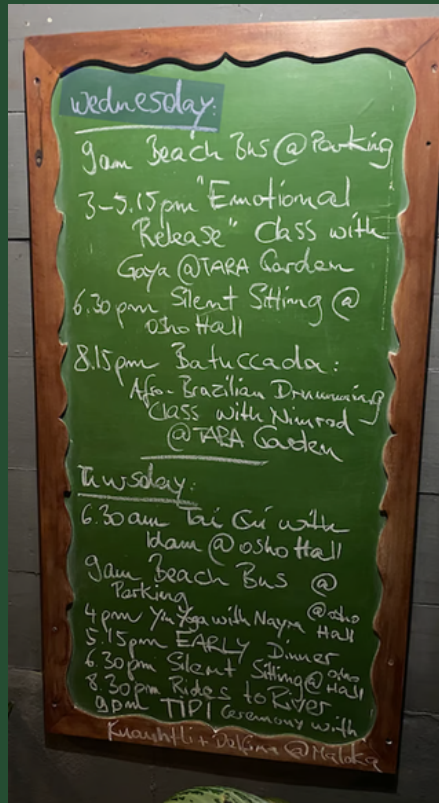 Wednesday:
9am Beach Bus @ Parking
3-5.15pm "Emotional
Release" Class with
Gaya @ TARA Garden
6.30pm Silent Sitting @
osho Hall
8.15pm Batuccada:
Afro-Brazilian Drumming
Class with Nimrod
@ TARA Garden
Thursday:
6.30am Tai Gi with
Idam @ osho Hall
9am Beach Bus @
Parking
4pm Yin Yoga with Nayra @osho
Hall
5.15pm EARLY Dinner
6.30pm Silent Sitting @ osho
Hall
8.30pm Rides to River
9pm TIPI Ceremony with
@ Maloka